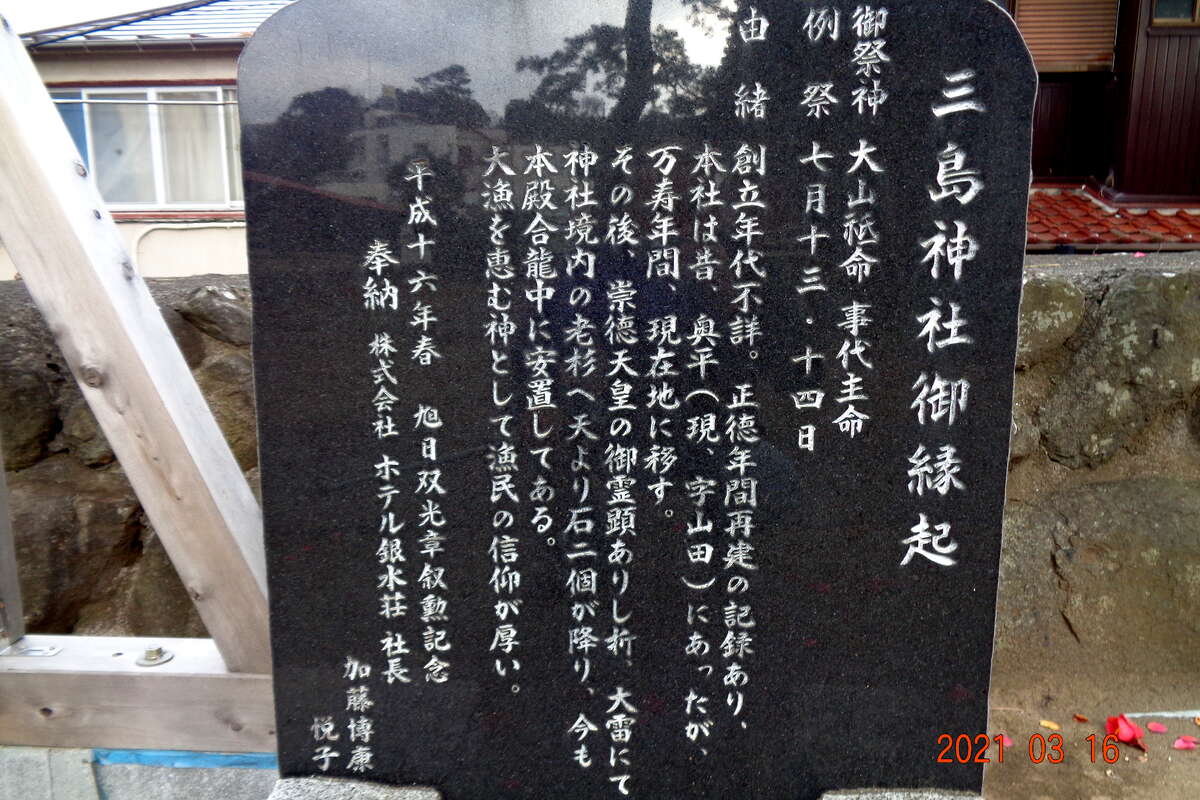 三島神社御縁起
御祭神 大山祇命 事代主命
例祭 七月十三・十四日
由緒 創立年代不詳。正徳年間再建の記録あり、
本社は昔、奥平(現、字山田)にあったが、
万寿年間、現在地に移す。
その後、崇徳天皇の御霊顕ありし折、大雷にて
神社境内の老杉へ天より石二個が降り、今も
本殿合龍中に安置してある。
大漁を恵む神として漁民の信仰が厚い。
平成十六年春 旭日双光章叙勲記念
奉納 株式会社 ホテル銀水荘 社長
加藤博康
悦子
2021 03 16